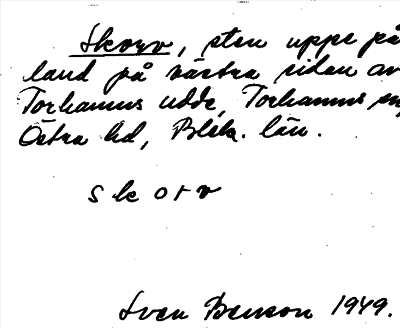 Skorv, sten uppe på
land på västra sidan av
Torhamns udde, Torhamns sn,
Östra hd, Blek. län.
skorv
Sven Benson 1949.